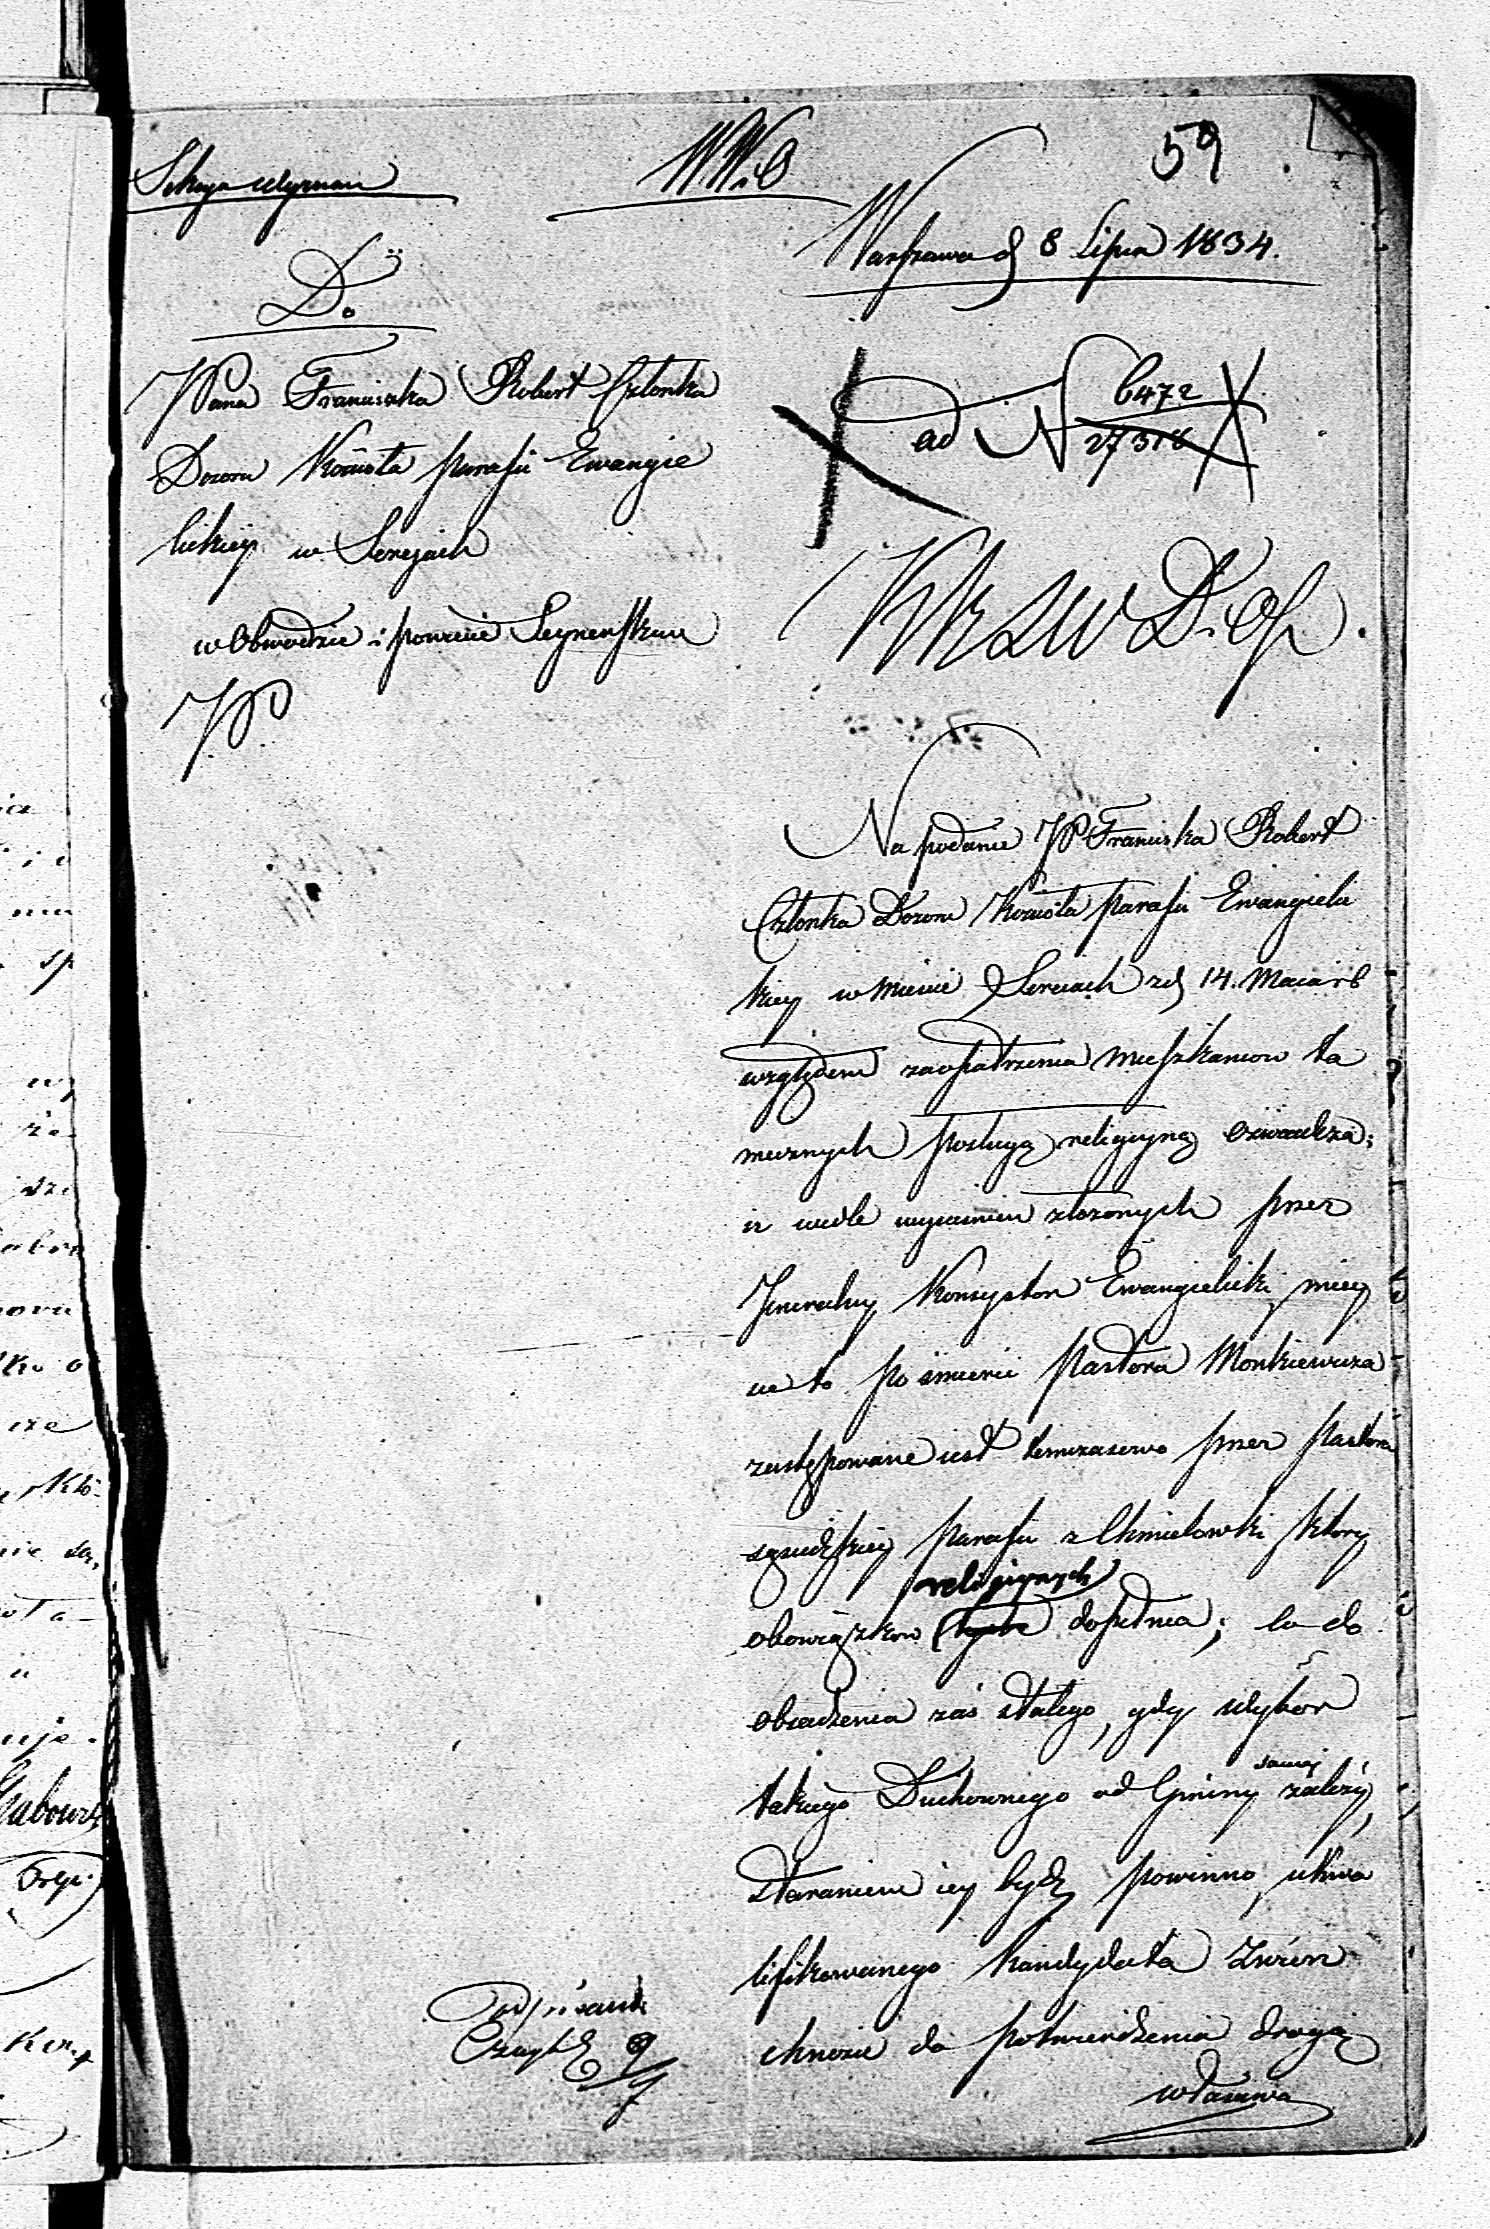 59
Sekcya Wyznań
WW. i O
Warszawa d 8 Lipca 1834.
Do
JPana Franciszka Robert Członka
Dozoru Kościoła parafii Ewangie
lickiey w Serejach
w Obwodzie i powiecie Seyneńskim
JP.
ad N 6472
27318
KRSW D. i OP.
Na podanie JP Franciszka Robert
Członka Dozoru Kościoła parafii Ewangielic
kiey w mieście Sereiach z d 14. Maia r b
względem zaopatrzenia mieszkańców ta
mecznych posługą religijną oświadcza;
iż wedle wyiaśnień złożonych przez
Jeneralny Konsystorz Ewangielicki, miey
sce to po śmierci pastora Monkiewicza
zastępowane iest tymczasowo przez Pastora
sąsiedzkiey parafii z Chmielowki który
religijnych
obowiązków dopełnia; co do
obsadzenia zaś stałego, gdy wybór
samey
takiego Duchownego od Gminy zależy,
staraniem iey bydź powinno, ukwa
lifikowanego kandydata Zwierz
chności do potwierdzenia drogą
właściwą
Podpisano
Czayk
9/7